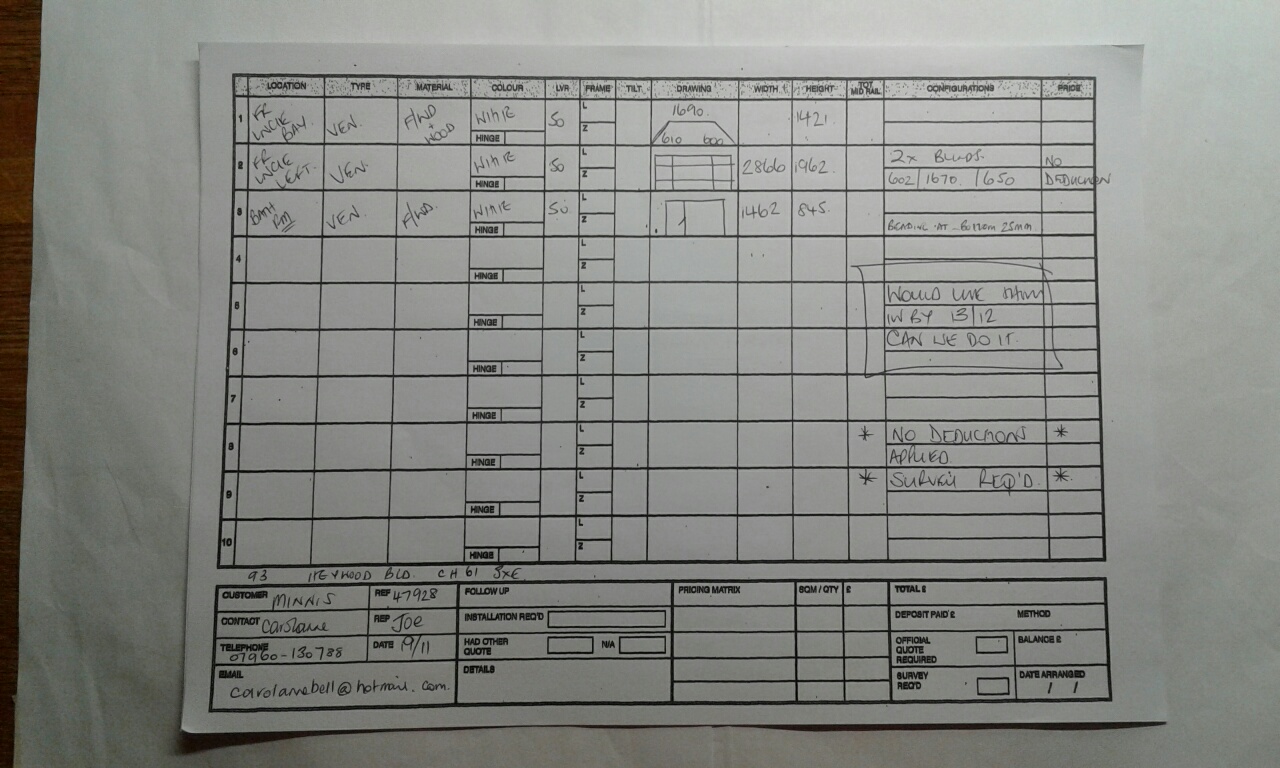 LOCATION TYPE MATERIAL COLOUR LVR FRAME TILT DRAWING WIDTH HEIGHT TOT MID RAIL CONFIGURATIONS PRICE
1 FR UNCLE BAY. VEN. F/WD + WOOD WHITE HINGE 50 L Z 1690. 610 600 1421.
2 FR UNCLE LEFT. VEN. WHITE HINGE 50 L Z 2866 1962 2x BLINDS. NO
602 / 1670. / 650 DEDUCTION
3 BATH RM VEN. F/WD. WHITE HINGE 50 L Z 1462 845.
BEADING AT BOTTOM 25mm
4 HINGE L Z
5 HINGE L Z WOULD LIKE THEM
IN BY 13/12
6 HINGE L Z CAN WE DO IT.
7 HINGE L Z
8 HINGE L Z * NO DEDUCTIONS *
APPLIED.
9 HINGE L Z * SURVEY REQ'D. *
10 HINGE L Z
93 HEYWOOD BLD. CH61
CUSTOMER MINNIS REF 47928 FOLLOW UP PRICING MATRIX SQM / QTY £ TOTAL £
CONTACT REP JOE INSTALLATION REQ'D DEPOSIT PAID £ METHOD
TELEPHONE 07960-130788 DATE 19/11 HAD OTHER QUOTE N/A OFFICIAL QUOTE REQUIRED BALANCE £
EMAIL DETAILS SURVEY REQ'D DATE ARRANGED / /
carolanebell@hotmail.com.